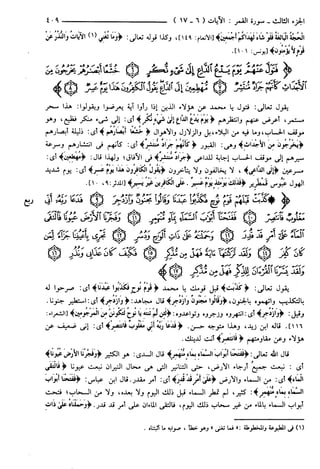 الجزء الثالث ـ سورة القمر : الآيات (٦ ـ ١٧) ٤٠٩
الحجة البالغة فلو شاء لهداكم أجمعين﴾ [الأنعام: ١٤٩]، وكذا قوله تعالى: ﴿وما تغني (١) الآيات والنذر عن
قوم لا يؤمنون﴾ [يونس: ١٠١].
﴿فتول عنهم يوم يدع الداع إلى شيء نكر ۝ خشعا أبصارهم يخرجون من
الأجداث كأنهم جراد منتشر ۝ مهطعين إلى الداع يقول الكافرون هذا يوم عسر ۝﴾
يقول تعالى: فتول يا محمد عن هؤلاء الذين إذا رأوا آية يعرضوا ويقولوا: هذا سحر
مستمر، أعرض عنهم وانتظرهم ﴿يوم يدع الداع إلى شيء نكر﴾ أي: إلى شيء منكر فظيع، وهو
موقف الحساب، وما فيه من البلاء، بل والزلازل والأهوال ﴿خشعا أبصارهم﴾ أي: ذليلة أبصارهم
﴿يخرجون من الأجداث﴾ وهي: القبور ﴿كأنهم جراد منتشر﴾ أي: كأنهم في انتشارهم وسرعة
سيرهم إلى موقف الحساب إجابة للداعي ﴿جراد منتشر﴾ في الآفاق؛ ولهذا قال: ﴿مهطعين﴾ أي:
مسرعين ﴿إلى الداع﴾، لا يخالفون ولا يتأخرون ﴿يقول الكافرون هذا يوم عسر﴾ أي: يوم شديد
الهول عبوس قمطرير ﴿فذلك يومئذ يوم عسير. على الكافرين غير يسير﴾ [المدثر: ٩، ١٠].
﴿كذبت قبلهم قوم نوح فكذبوا عبدنا وقالوا مجنون وازدجر ۝ فدعا ربه أني
ربع
مغلوب فانتصر ۝ ففتحنا أبواب السماء بماء منهمر ۝ وفجرنا الأرض عيونا فالتقى
الماء على أمر قد قدر ۝ وحملناه على ذات ألواح ودسر ۝ تجري بأعيننا جزاء لمن
كان كفر ۝ ولقد تركناها آية فهل من مدكر ۝ فكيف كان عذابي ونذر ۝
ولقد يسرنا القرآن للذكر فهل من مدكر ۝﴾
يقول تعالى: ﴿كذبت﴾ قبل قومك يا محمد ﴿قوم نوح فكذبوا عبدنا﴾ أي: صرحوا له
بالتكذيب واتهموه بالجنون، ﴿وقالوا مجنون وازدجر﴾ قال مجاهد: ﴿وازدجر﴾ أي: استطير جنونا.
وقيل: ﴿وازدجر﴾ أي: انتهروه وزجروه وتواعدوه: ﴿لئن لم تنته يا نوح لتكونن من المرجومين﴾ [الشعراء:
١١٦]. قاله ابن زيد، وهذا متوجه حسن. ﴿فدعا ربه أني مغلوب فانتصر﴾ أي: إني ضعيف عن
هؤلاء وعن مقاومتهم ﴿فانتصر﴾ أنت لدينك.
قال الله تعالى: ﴿ففتحنا أبواب السماء بماء منهمر﴾ قال السدي: هو الكثير ﴿وفجرنا الأرض عيونا﴾
أي: نبعت جميع أرجاء الأرض، حتى التنانير التي هي محال النيران نبعت عيونا ﴿فالتقى
الماء﴾ أي: من السماء والأرض ﴿على أمر قد قدر﴾ أي: أمر مقدر. قال ابن عباس: ﴿ففتحنا أبواب
السماء بماء منهمر﴾: كثير، لم تمطر السماء قبل ذلك اليوم ولا بعده، ولا من السحاب؛ فتحت
أبواب السماء بالماء من غير سحاب ذلك اليوم، فالتقى الماءان على أمر قد قدر. ﴿وحملناه على ذات
(١) في المطبوعة والمخطوطة: « فما تغني » وهو خطأ ، صوابه ما أثبتناه .